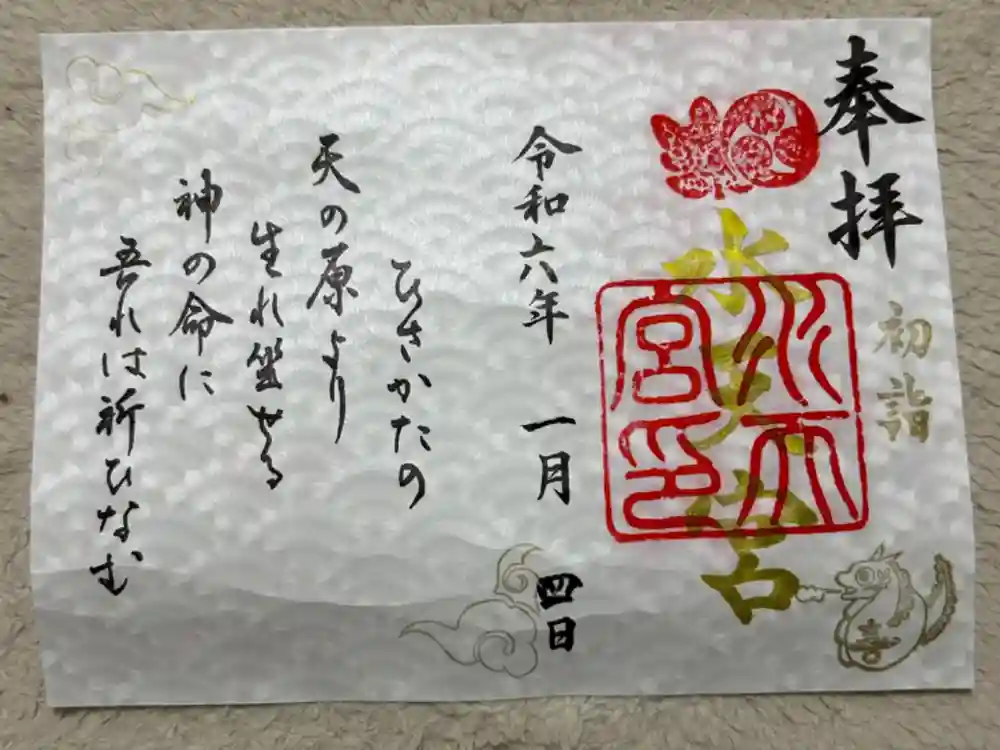 奉拝
初詣
水天宮
水天宮印
令和六年 一月 四日
ひさかたの
天の原より
生れ坐せる
神の命に
吾れは祈ひなむ
喜